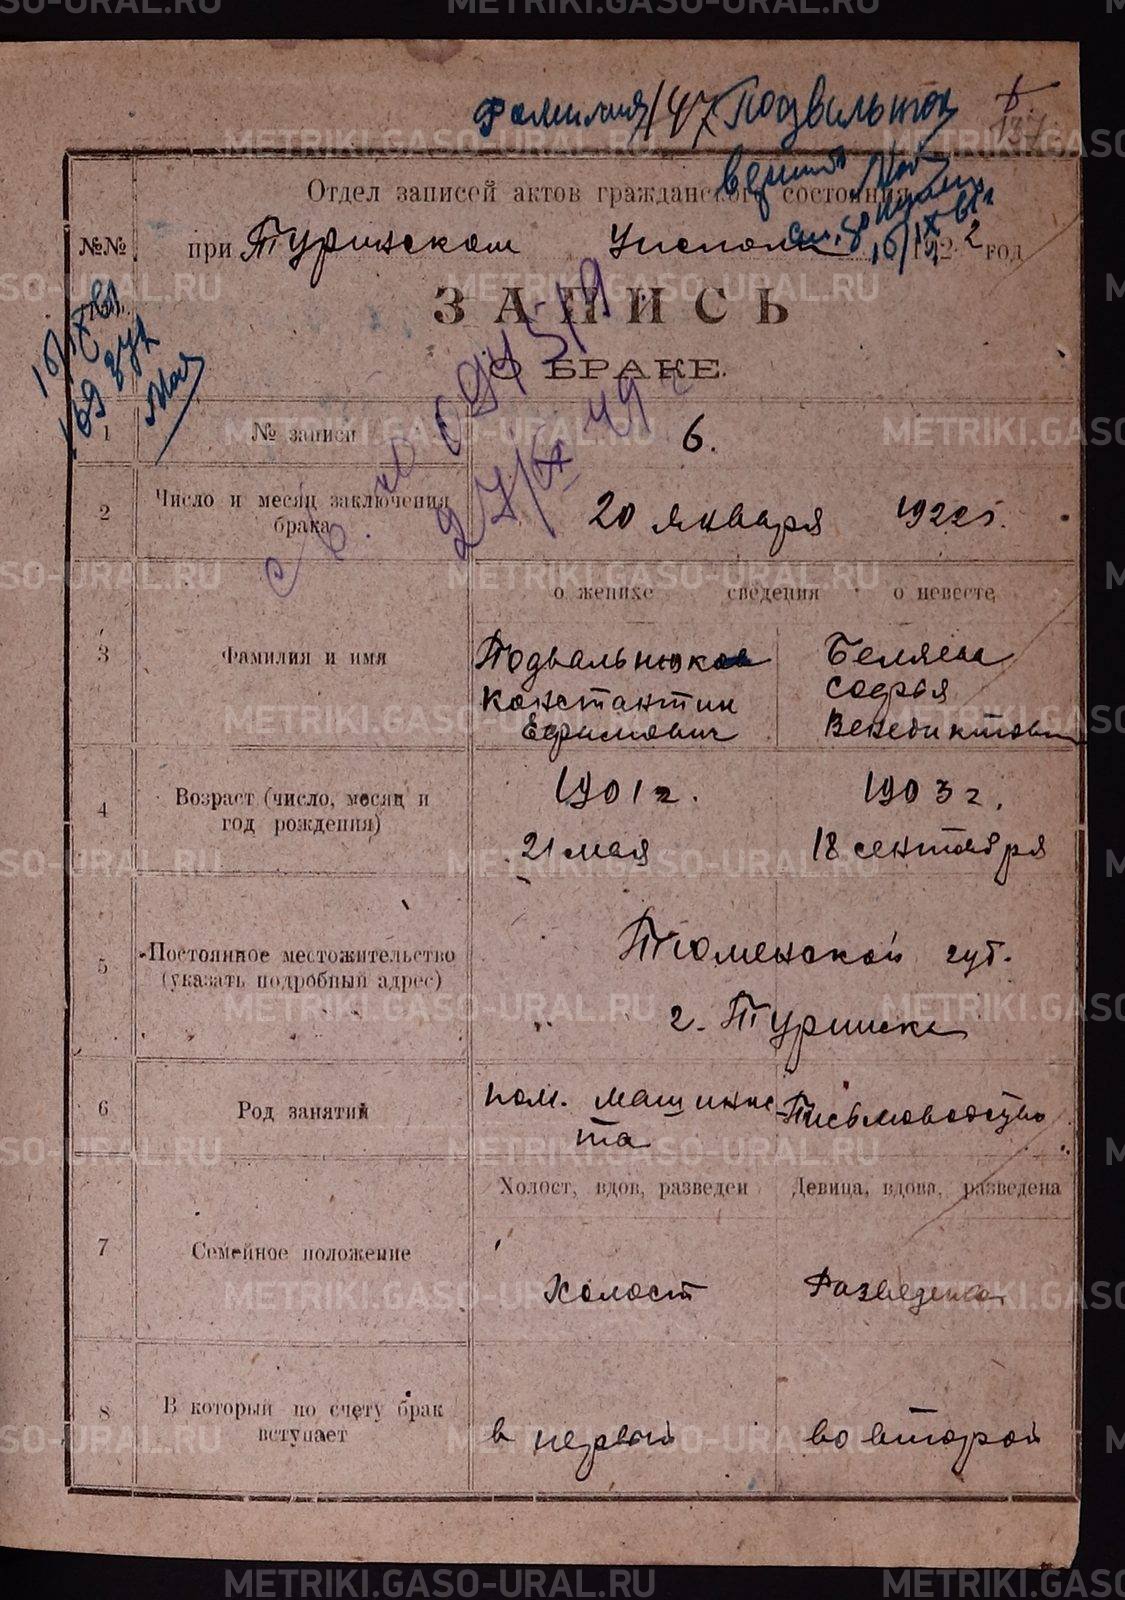 METRIKI.GASO-URAL.RU
Фамилия 147 Подвильток
Отдел записей актов гражданского состояния
№№
при Туринском Исполк 1922 год
16/IX 61
ЗАПИСЬ
О БРАКЕ.
169
1 № записи 6.
27/IX 49 г
2 Число и месяц заключения брака 20 января 1922 г.
о женихе сведения о невесте
3 Фамилия и имя
Подвальнюков Беляева
Константин Софья
Ефимович Венедиктовн
4 Возраст (число, месяц и год рождения)
1901 г. 1903 г.
21 мая 18 сентября
5 Постоянное местожительство (указать подробный адрес)
Тюменской губ.
г. Туринске
6 Род занятий
пом. машинис- Письмоводство
та
Холост, вдов, разведен Девица, вдова, разведена
7 Семейное положение
Холост Разведена
8 В который по счету брак вступает
в первый во второй
METRIKI.GASO-URAL.RU